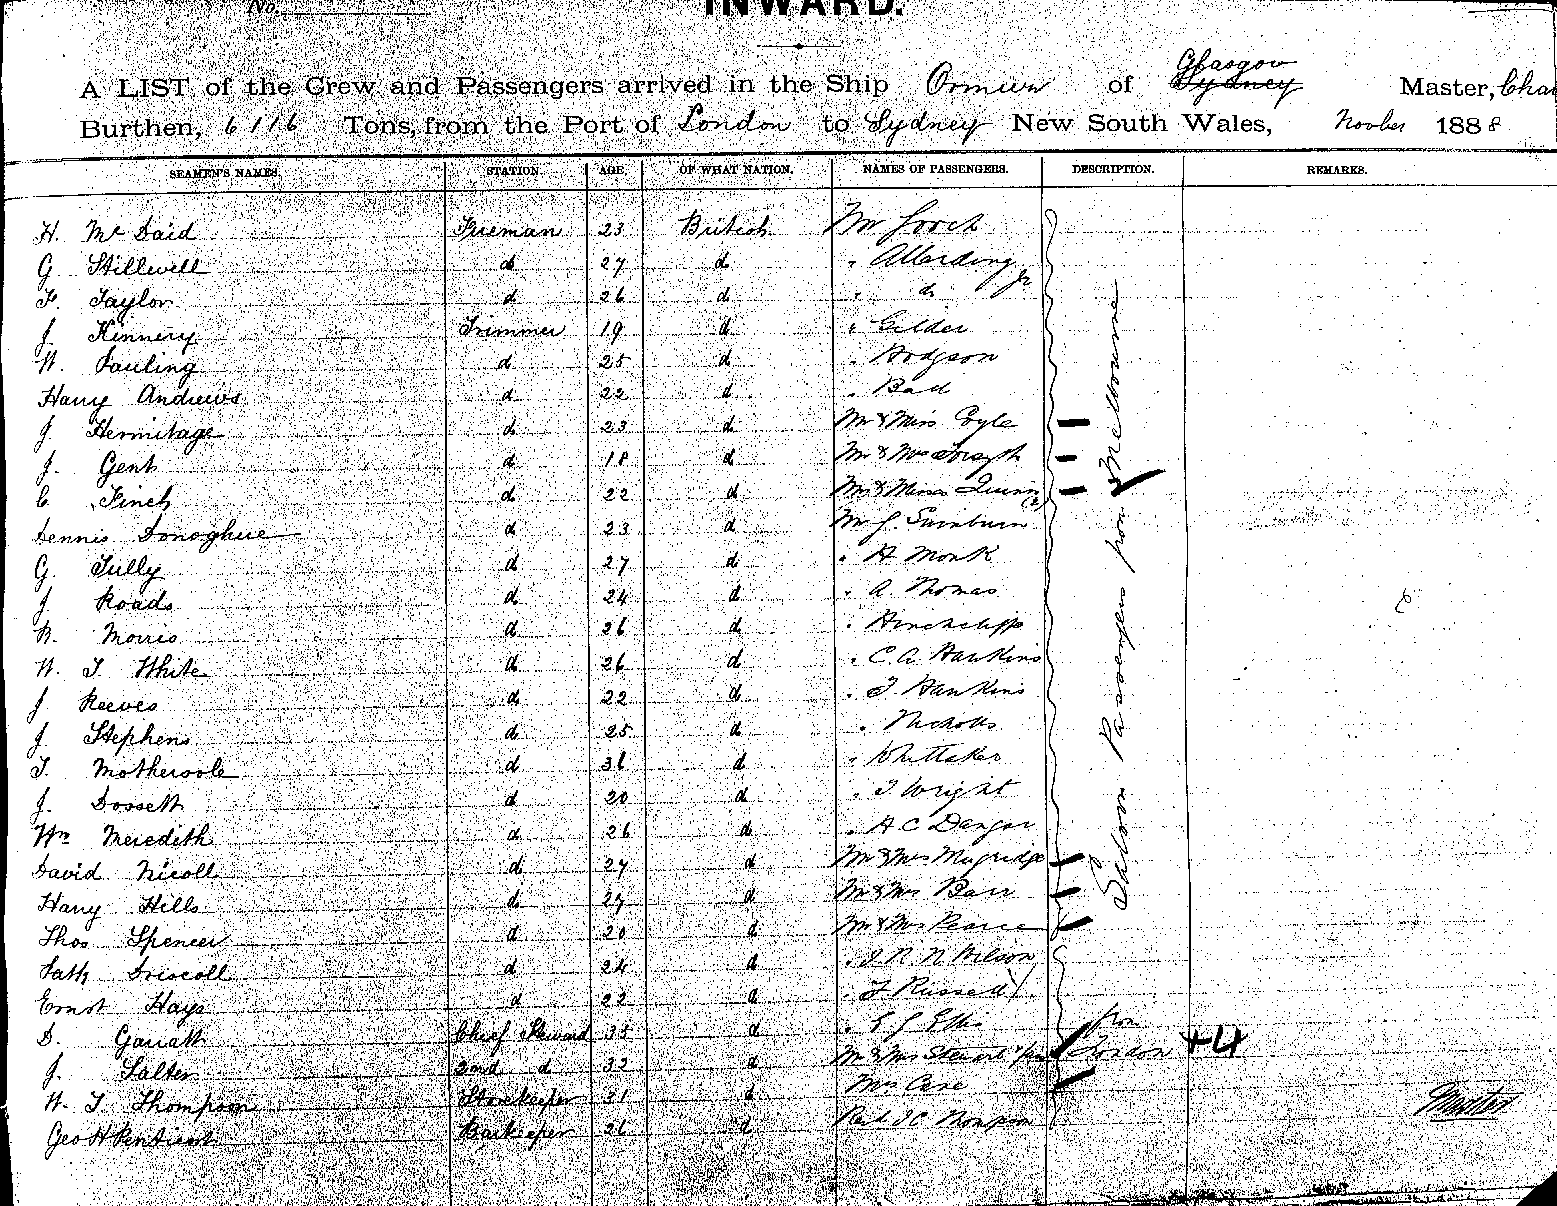 No.
INWARD.
Glasgow
A LIST of the Crew and Passengers arrived in the Ship Ormuz of Sydney Master, Char
Burthen, 6116 Tons, from the Port of London to Sydney New South Wales, Novber 1888
SEAMEN'S NAMES. STATION. AGE. OF WHAT NATION. NAMES OF PASSENGERS. DESCRIPTION. REMARKS.
H. McDaid Fireman 23 British Mr Gooch
G Stillwell d 27 d " Allerding
F. Taylor d 26 d " d Jr
J Kennery Trimmer 19 d " Gilder
W. Pauling d 25 d " Hodgson
Harry Andrews d 22 d "
J Hermitage d 23 d Mr & Miss Coyle
J. Gent d 18 d Mr & Mrs Forsyth
C Finch d 22 d Quinn
Dennis Donoghue d 23 d Mr J Swinburn
G Tully d 27 d " H Monk
J Roads d 24 d " A. Thomas
Morris d 26 d " Hinchcliff
W. T. White d 26 d " C. A. Hawkins
J Reeves d 22 d " T Hawkins
J Stephens d 25 d " Nicholls
T. Motheroole d 31 d " Whittaker
J. Dossett d 20 d " T Wright
Wm Meredith d 26 d " H C Dangar
David Nicoll d 27 d Mr & Mrs Mugridge
Harry Hills d 29 d Mr & Mrs Barr
Thos Spencer d 20 d Mr & Mrs Pearce
Driscoll d 24 d Wilson
Ernest Hays d 22 d " Russell
D. Garratt Chief Steward 35 d " Ellis from
J. Salter 2nd d 32 d Mr & Mrs Stewart London +4
W. T. Thompson Storekeeper 31 d
Geo H Barkeeper 26 d Thompson
Saloon Passengers from Melbourne
Master